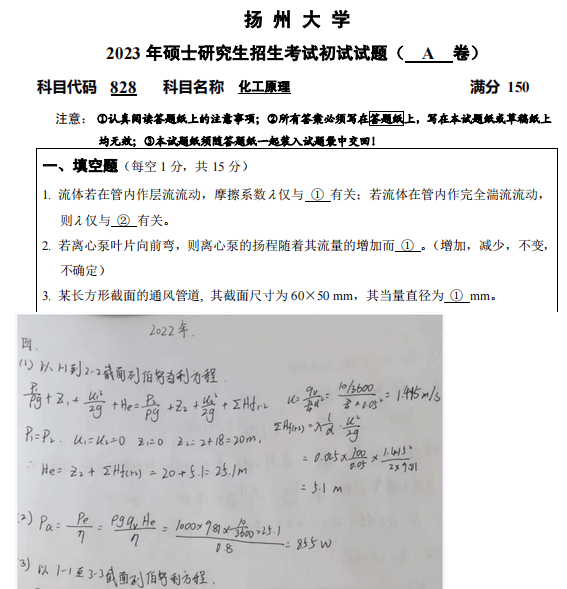 扬 州 大 学
2023 年硕士研究生招生考试初试试题（ A 卷）
科目代码 828 科目名称 化工原理 满分 150
注意： ①认真阅读答题纸上的注意事项；②所有答案必须写在答题纸上，写在本试题纸或草稿纸上
均无效；③本试题纸须随答题纸一起装入试题袋中交回！
一、填空题（每空 1 分，共 15 分）
1. 流体若在管内作层流流动，摩擦系数λ仅与 ① 有关；若流体在管内作完全湍流流动，
则λ仅与 ② 有关。
2. 若离心泵叶片向前弯，则离心泵的扬程随着其流量的增加而 ① 。（增加，减少，不变，
不确定）
3. 某长方形截面的通风管道, 其截面尺寸为 60×50 mm，其当量直径为 ① mm。
2022年.
四.
(1) 以 1-1到2-2截面列伯努利方程.
P₁/ρg + Z₁ + u₁²/2g + He = P₂/ρg + Z₂ + u₂²/2g + ΣHf₁₋₂ u = qv/(π/4 d²) = (10/3600)/(π/4 × 0.05²) = 1.415 m/s
P₁=P₂. u₁=u₂=0 Z₁=0 Z₂=2+18=20m, ΣHf(1-2) = λ · l/d · u²/2g
∴ He = Z₂ + ΣHf(1-2) = 20 + 5.1 = 25.1m = 0.025 × 100/0.05 × 1.415²/(2×9.81)
= 5.1 m
(2) Pa = Pe/η = ρg qv He/η = (1000×9.81×10/3600×25.1)/0.8 = 855 W
(3) 以 1-1至3-3截面列伯努利方程.